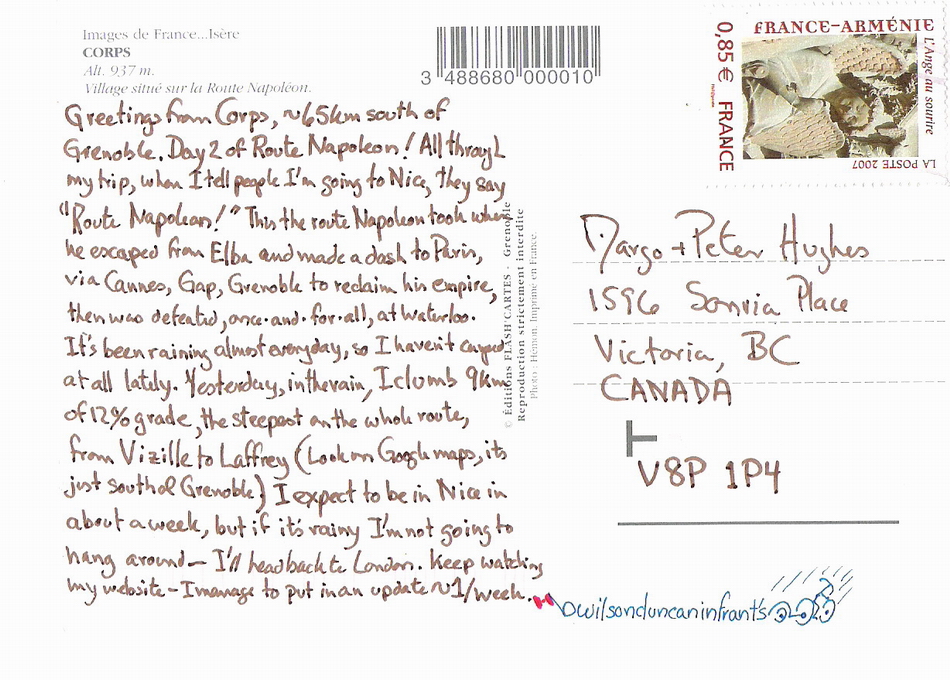 Images de France...Isère
CORPS
Alt. 937 m.
Village situé sur la Route Napoléon.
3 488680 000010
FRANCE-ARMÉNIE
0,85 € FRANCE
L'Ange au sourire
LA POSTE 2007
Greetings from Corps, ~65km south of
Grenoble. Day 2 of Route Napoleon! All through
my trip, when I tell people I'm going to Nice, they say
"Route Napoleon!" This the route Napoleon took when
he escaped from Elba and made a dash to Paris,
via Cannes, Gap, Grenoble to reclaim his empire,
then was defeated, once-and-for-all, at Waterloo.
It's been raining almost everyday, so I haven't camped
at all lately. Yesterday, in the rain, I clumb 9km
of 12% grade, the steepest on the whole route,
from Vizille to Laffrey (Look on Google maps, its
just south of Grenoble) I expect to be in Nice in
about a week, but if it's rainy I'm not going to
hang around – I'll head back to London. Keep watching
my website – I manage to put in an update ~1/week.
Dwilsonduncaninfrants
© Éditions FLASH CARTES - Grenoble
Reproduction strictement interdite
Photo : Hémon. Imprimé en France.
Margo + Peter Hughes
1596 Sonria Place
Victoria, BC
CANADA
V8P 1P4